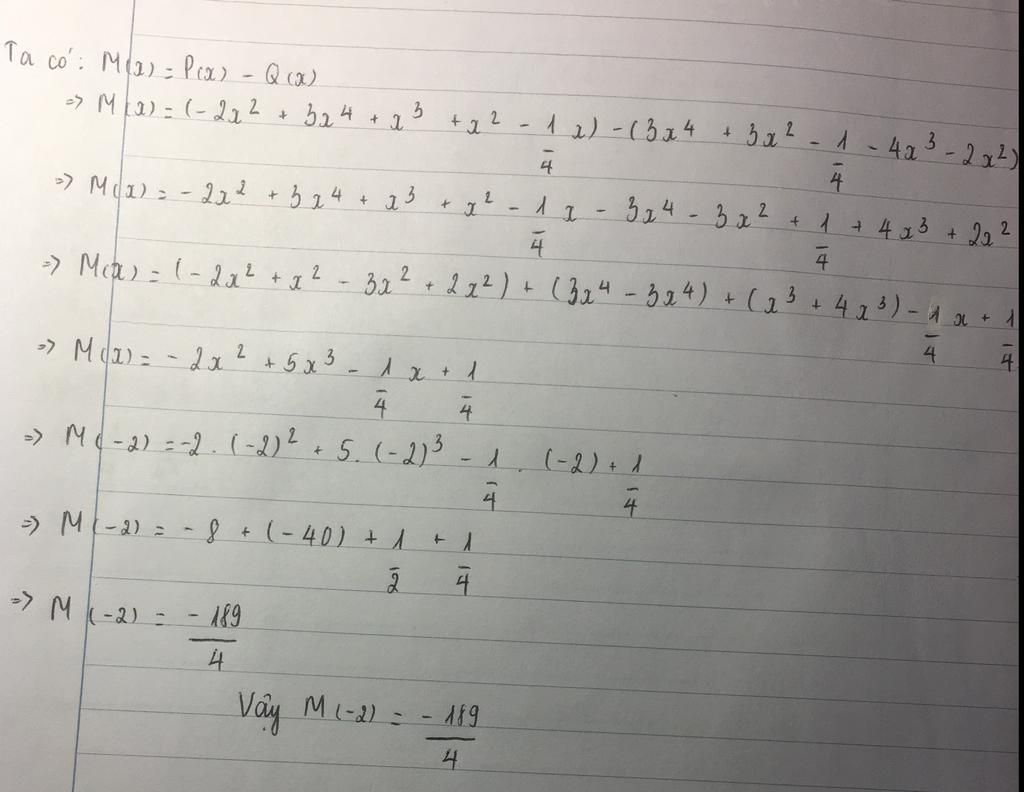 Ta có: M(x) = P(x) - Q(x)
=> M(x) = (-2x² + 3x⁴ + x³ + x² - 1/4 x) - (3x⁴ + 3x² - 1/4 - 4x³ - 2x²)
=> M(x) = -2x² + 3x⁴ + x³ + x² - 1/4 x - 3x⁴ - 3x² + 1/4 + 4x³ + 2x²
=> M(x) = (-2x² + x² - 3x² + 2x²) + (3x⁴ - 3x⁴) + (x³ + 4x³) - 1/4 x + 1/4
=> M(x) = -2x² + 5x³ - 1/4 x + 1/4
=> M(-2) = -2 . (-2)² + 5. (-2)³ - 1/4 . (-2) + 1/4
=> M(-2) = -8 + (-40) + 1/2 + 1/4
=> M(-2) = -189/4
Vậy M(-2) = -189/4